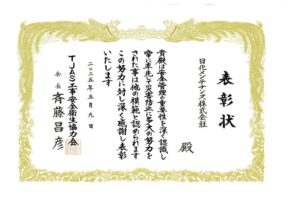 表彰状
日化メンテナンス株式会社
殿
貴殿は安全管理の重要性を深く認識し
常に率先して災害防止に多大の努力を
された事は他の模範と認められます
この努力に対し深く感謝し表彰
いたします
二〇二五年五月九日
TJAS工事安全衛生協力会
会長 斉藤昌彦